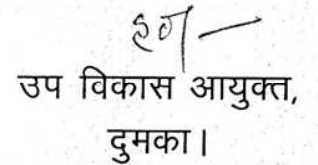 ह०/—
उप विकास आयुक्त,
दुमका।